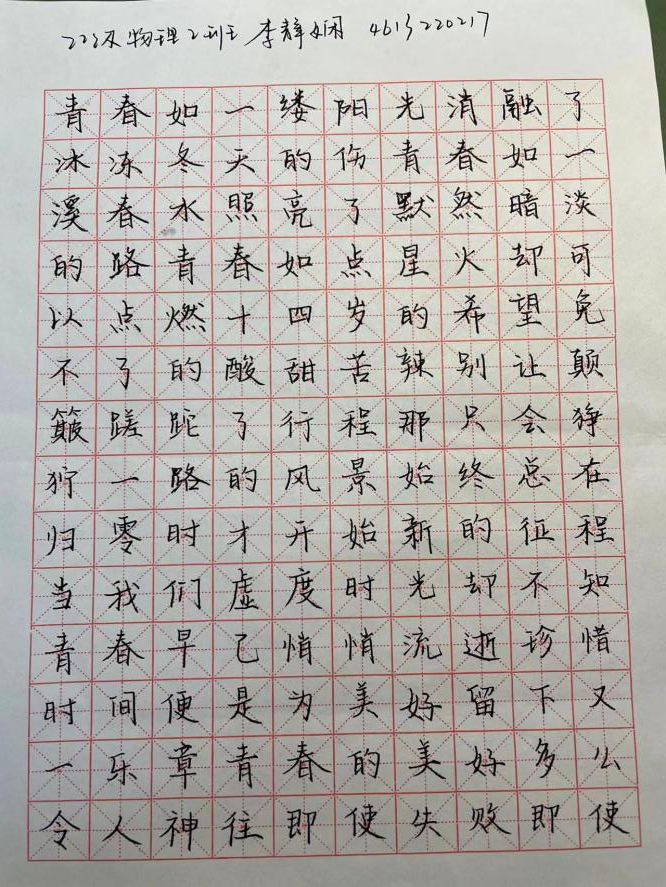 222级物理2班 李静娴 4613220217
青春如一缕阳光消融了
冰冻冬天的伤青春如一
溪春水照亮了默然暗淡
的路青春如点星火却可
以点燃十四岁的希望免
不了的酸甜苦辣别让颠
簸蹉跎了行程那只会狰
狞一路的风景始终总在
归零时才开始新的征程
当我们虚度时光却不知
青春早已悄悄流逝珍惜
时间便是为美好留下又
一乐章青春的美好多么
令人神往即使失败即使